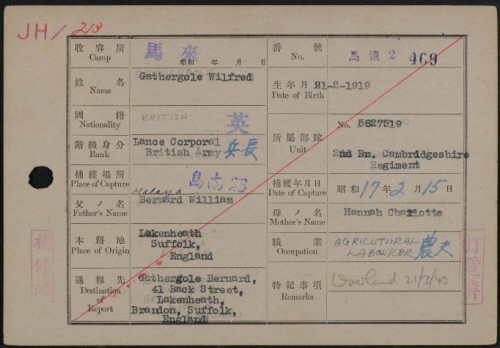 JH / 213
收容所
Camp
馬來
昭和 年 月 日
番號
No.
馬還2
469
姓名
Name
Gathergole Wilfred
生年月日
Date of Birth
21-2-1919
國籍
Nationality
BRITISH
英
所屬部隊
Unit
No. 5827519
2nd Bn. Cambridgeshire
Regiment
階級身分
Rank
Lance Corporal
British Army
兵長
捕獲場所
Place of Capture
Malaya
捕獲年月日
Date of Capture
昭和 17年 2月 15日
父ノ名
Father's Name
Bernard William
母ノ名
Mother's Name
Hannah Charlotte
本籍地
Place of Origin
Lakenheath
Suffolk,
England
職業
Occupation
AGRICULTURAL
LABOURER
農夫
通報先
Destination of Report
Gathergole Bernard,
41 Back Street,
Lakenheath,
Brandon, Suffolk,
England
特記事項
Remarks
Overland